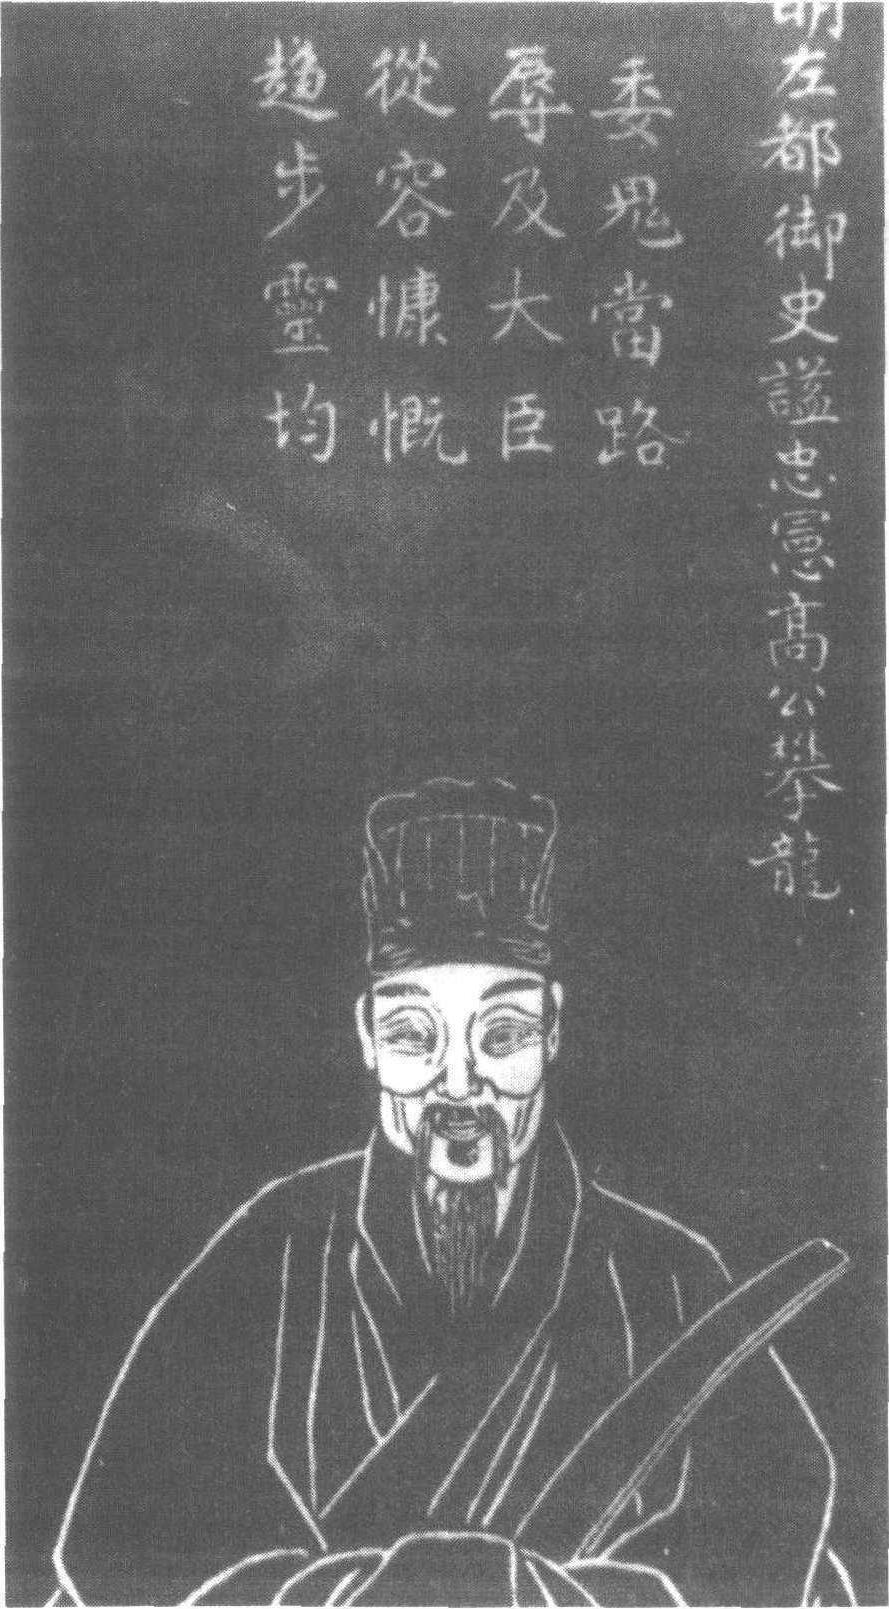 明左都御史諡忠憲高公攀龍
委鬼當路
辱及大臣
從容慷慨
趨步靈均